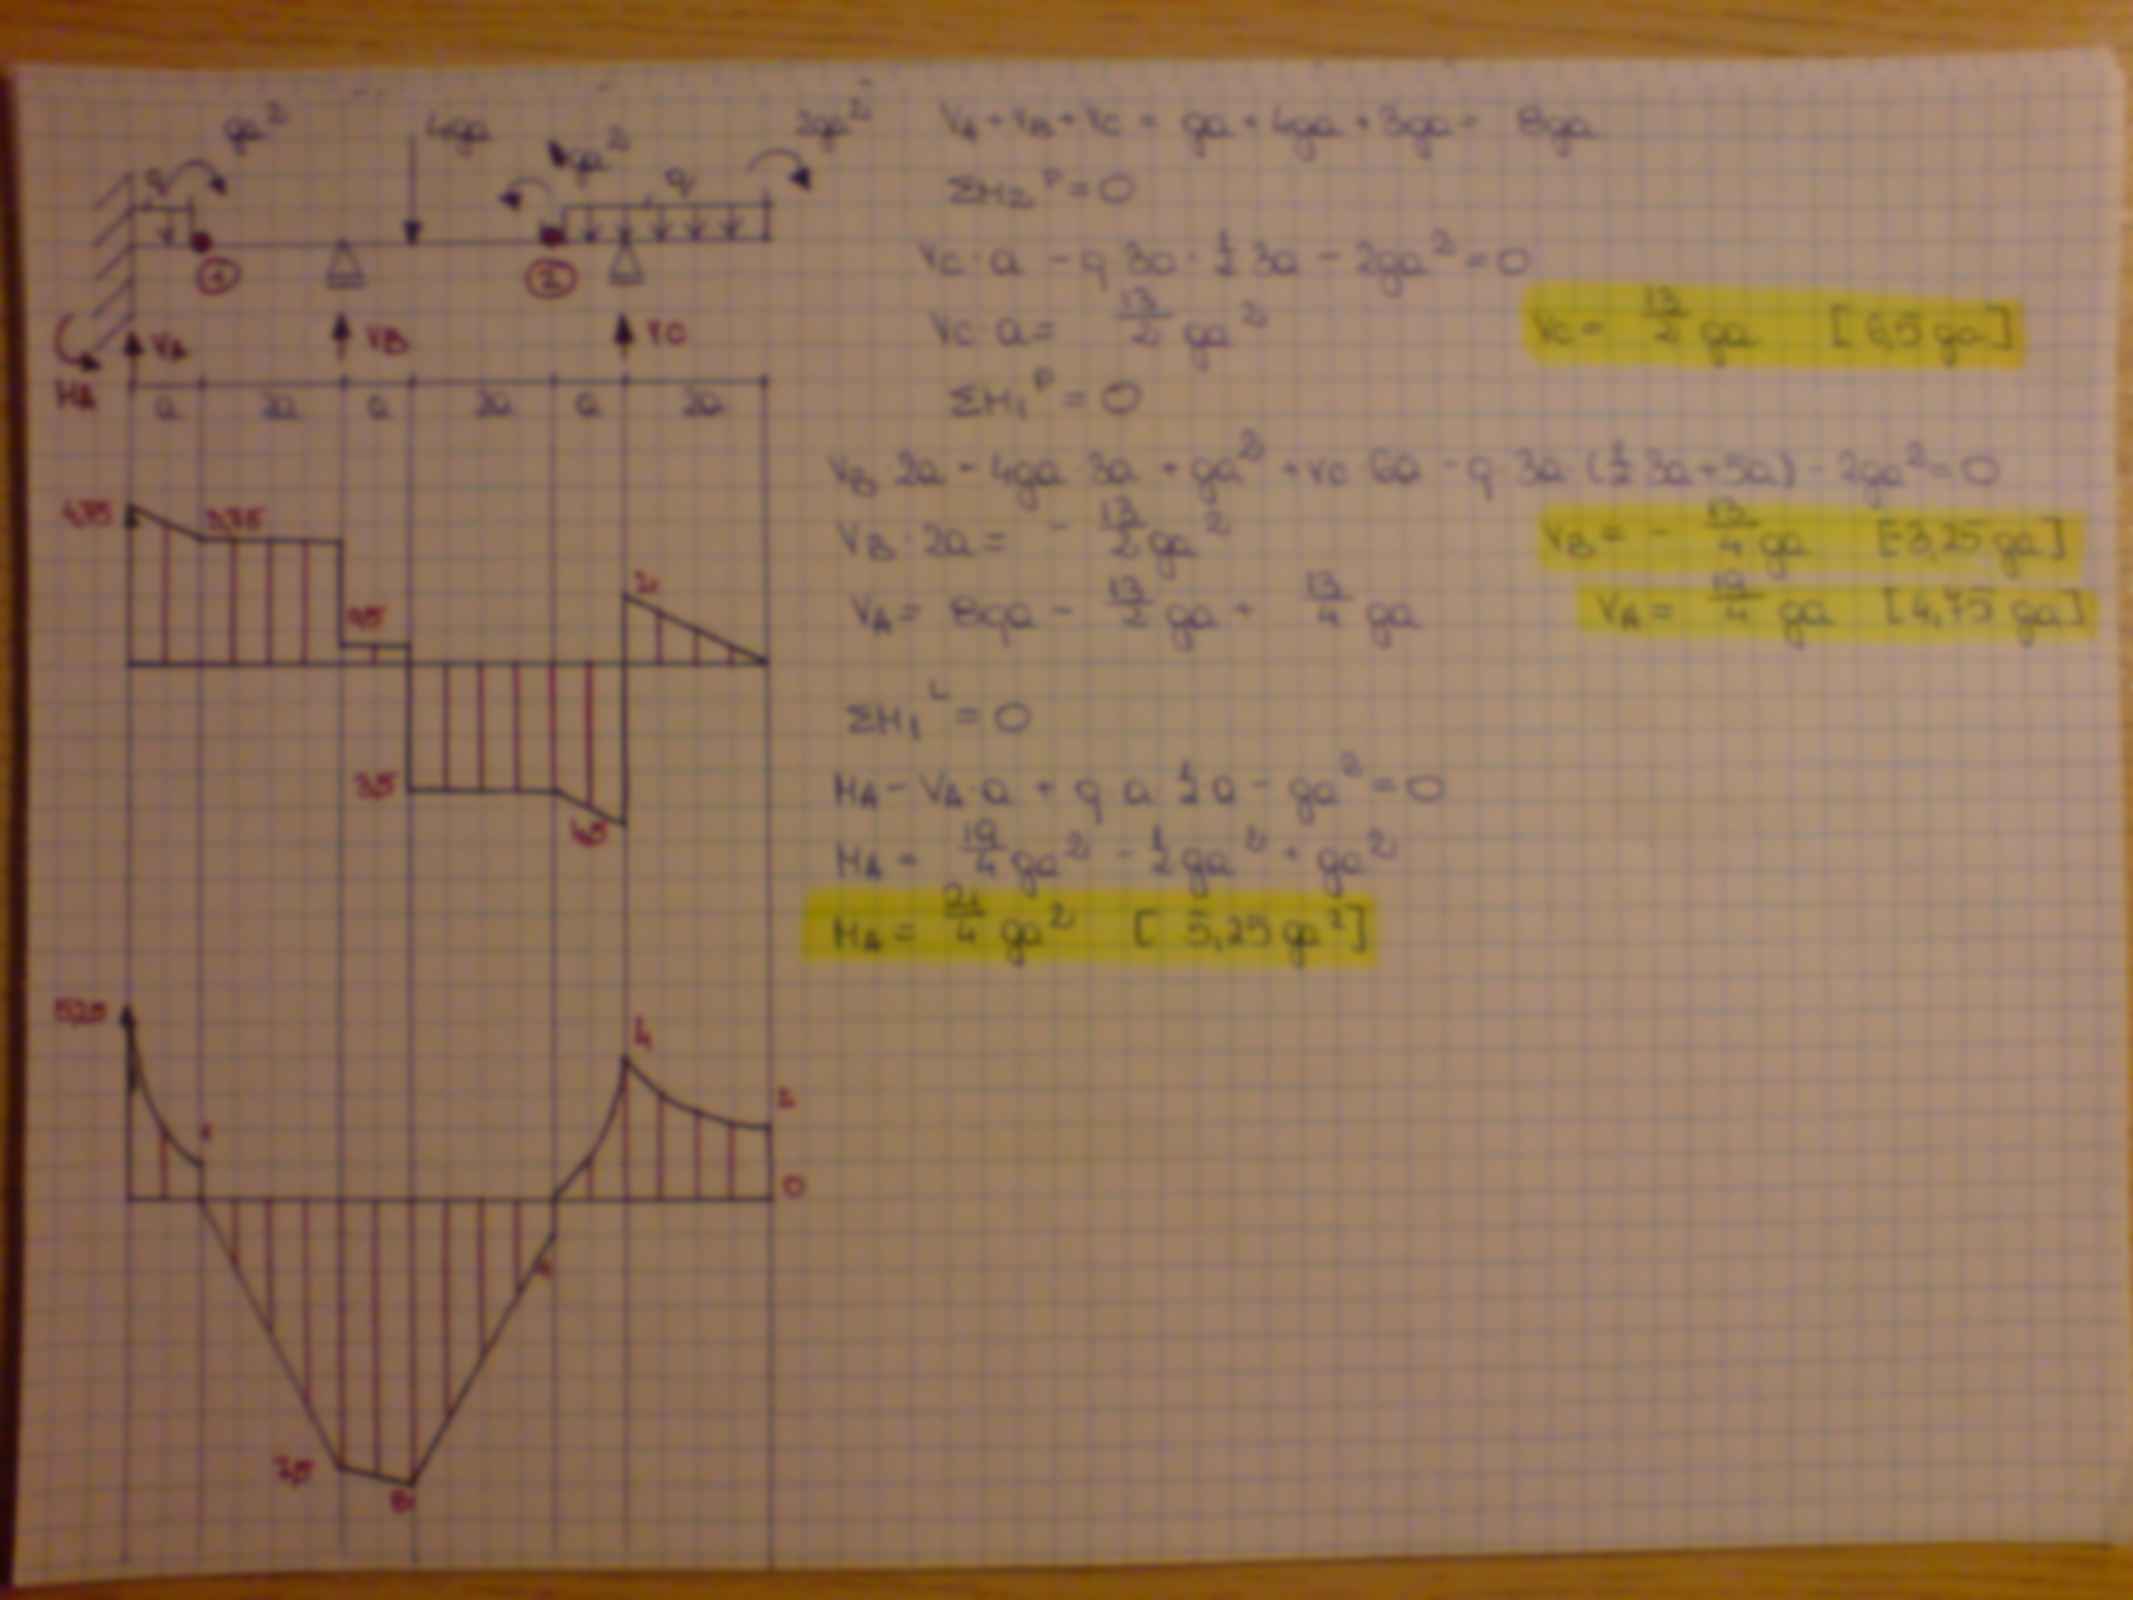 qa²
4qa
qa²
2qa²
q
q
①
②
VA
VB
VC
MA
a
2a
a
2a
a
2a
4,75
3,75
0,5
2
3,5
4,5
5,25
1
4
2
0
1
7,5
8
VA + VB + VC = qa + 4qa + 3qa = 8qa
ΣM₂ᴾ = 0
VC · a - q 3a · ½ 3a - 2qa² = 0
VC · a = 13/2 qa²
VC = 13/2 qa [6,5 qa]
ΣM₁ᴾ = 0
VB 2a - 4qa 3a + qa² + VC 6a - q 3a (½ 3a + 5a) - 2qa² = 0
VB · 2a = - 13/2 qa²
VB = - 13/4 qa [-3,25 qa]
VA = 8qa - 13/2 qa + 13/4 qa
VA = 19/4 qa [4,75 qa]
ΣM₁ᴸ = 0
MA - VA · a + q a ½ a - qa² = 0
MA = 19/4 qa² - ½ qa² + qa²
MA = 21/4 qa² [5,25 qa²]